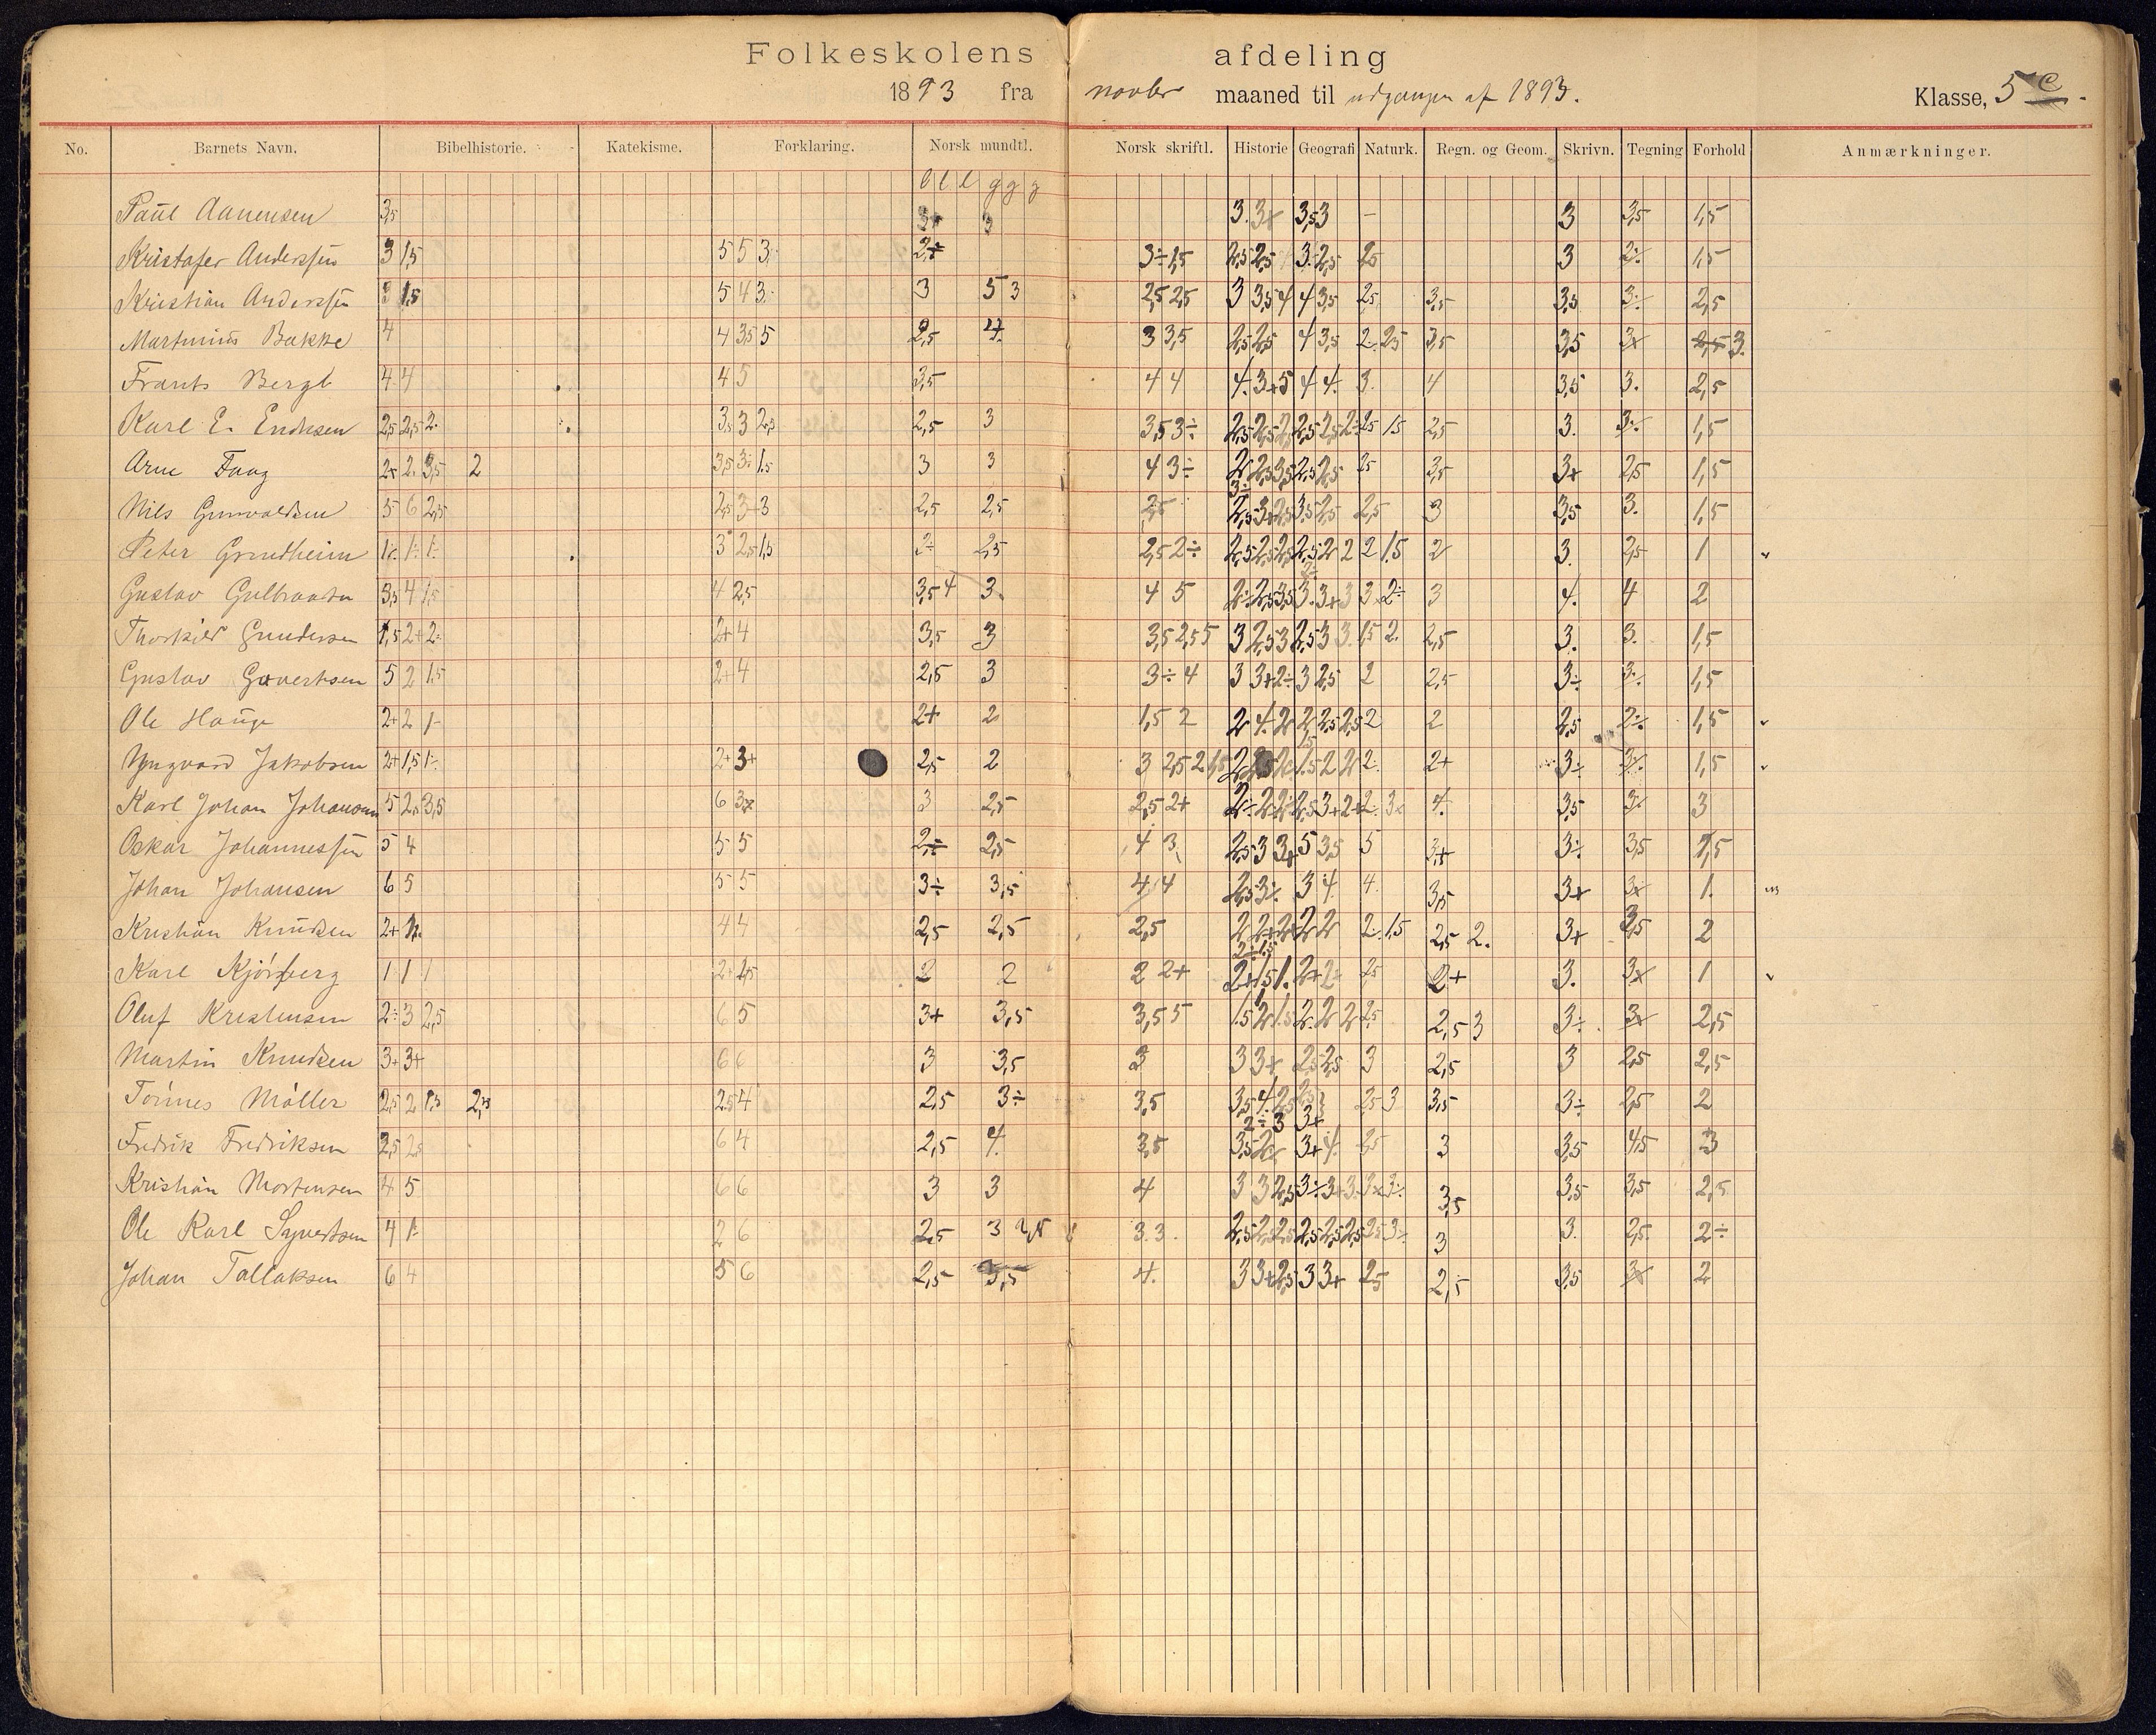 Folkeskolens afdeling
1893 fra novbr maaned til udgangen af 1893. Klasse, 5 C.
No. Barnets Navn. Bibelhistorie. Katekisme. Forklaring. Norsk mundtl. Norsk skriftl. Historie Geografi Naturk. Regn. og Geom. Skrivn. Tegning Forhold Anmærkninger.
l l l g g g
Paul Aanensen 3,5 3+ 3 3. 3+ 3,5 3 – 3 3,5 1,5
Kristofer Anderssen 3 1,5 5 5 3 2÷ 3÷ 1,5 2,5 2,5 3. 2,5 2,5 3 2÷ 1,5
Kristian Anderssen 1,5 5 4 3 3 5 3 2,5 2,5 3 3,5 4 4 3,5 2,5 3,5 3,5 3÷ 2,5
Martinius Bakke 4 4 3,5 5 2,5 4. 3 3,5 2,5 2,5 4 3,5 2÷ 2,5 3,5 3,5 3+ 2,5 3.
Frants Bergh 4 4 4 5 3,5 4 4 4. 3+ 5 4 4. 3. 4 3,5 3. 2,5
Karl E. Endresen 2,5 2,5 2. 3,5 3 2,5 2,5 3 3,5 3÷ 2,5 2,5 2 2,5 2,5 2÷ 2,5 1,5 2,5 3. 3÷ 1,5
Arne Faag 2+ 2. 3,5 2 3,5 3÷ 1,5 3 3 4 3÷ 2 2,5 3,5 2,5 2,5 2,5 3,5 3+ 2,5 1,5
Nils Gunvaldsen 5 6 2,5 2,5 3+ 3 2,5 2,5 2,5 3÷ 2,5 3+ 2,5 3,5 2,5 2,5 3 3,5 3. 1,5
Peter Grundheim 1÷ 1÷ 1÷ 3 2,5 1,5 2÷ 2,5 2,5 2÷ 2,5 2,5 2,5 2,5 2 2 2 1,5 2 3. 2,5 1
Gustav Gulbrandsen 3,5 4 1,5 4 2,5 3,5 4 3. 4 5 2÷ 2,5 3,5 3. 3+ 3 3+ 2÷ 3 4. 4 2
Thorkild Gundersen 1,5 2+ 2÷ 2+ 4 3,5 3 3,5 2,5 5 3 2,5 3 2,5 3 3. 1,5 2. 2,5 3. 3. 1,5
Gustav Govertsen 5 2 1,5 2+ 4 2,5 3 3÷ 4 3 3+ 2÷ 3 2,5 2 2,5 3÷ 3÷ 1,5
Ole Hauge 2+ 2 1÷ 2+ 2 1,5 2 2 4. 2 2 2,5 2,5 2 2 2,5 2÷ 1,5
Yngvard Jakobsen 2+ 1,5 1÷ 2+ 3+ 2,5 2 3 2,5 2 1,5 1,5 2 2 2÷ 2+ 3÷ 3÷ 1,5
Karl Johan Johansen 5 2,5 3,5 6 3+ 3 2,5 2,5 2+ 2÷ 2 2÷ 2,5 3+ 2+ 2÷ 3+ 4. 3,5 3÷ 3
Oskar Johannessen 5 4 5 5 2÷ 2,5 4 3 2,5 3 3+ 5 3,5 5 3+ 3÷ 3,5 1,5
Johan Johansen 6 5 5 5 3÷ 3,5 4 4 2,5 3÷ 3 4. 4. 3,5 3+ 3+ 1.
Kristian Knudsen 2+ 4 4 2,5 2,5 2,5 2 2+ 2 2 2 2÷ 1,5 2,5 2. 3+ 3,5 2
Karl Kjörberg 1 1 1 2+ 1,5 2 2 2 2+ 2÷ 1,5 2+ 1,5 1. 2+ 2÷ 2,5 2+ 3. 3+ 1
Oluf Kristensen 2÷ 3 2,5 6 5 3+ 3,5 3,5 5 1,5 2 1,5 2. 2 2 2,5 2,5 3 3÷ 3+ 2,5
Martin Knudsen 3+ 3+ 6 6 3 3,5 3 3 3+ 2,5 2,5 3 2,5 3 2,5 2,5
Tönnes Möller 2,5 2 1,5 2,5 2,5 4 2,5 3÷ 3,5 3,5 4. 2,5 2,5 2,5 3 3,5 3÷ 2,5 2
Fredrik Fredriksen 2,5 2,5 6 4 2,5 4. 3,5 2÷ 3 3+ 3,5 2 3+ 4. 2,5 3 3,5 4,5 3
Kristian Mortensen 4 5 6 6 3 3 4 3 3 2,5 3÷ 3+ 3 3+ 3÷ 3,5 3,5 3,5 2,5
Ole Karl Syvertsen 4 1÷ 2 6 2,5 3 2,5 3. 3. 2,5 2,5 2,5 2,5 2,5 2,5 2,5 3÷ 3 3. 2,5 2÷
Johan Tallaksen 6 4 5 6 2,5 3,5 4. 3 3+ 2,5 3 3+ 2,5 2,5 3,5 3+ 2